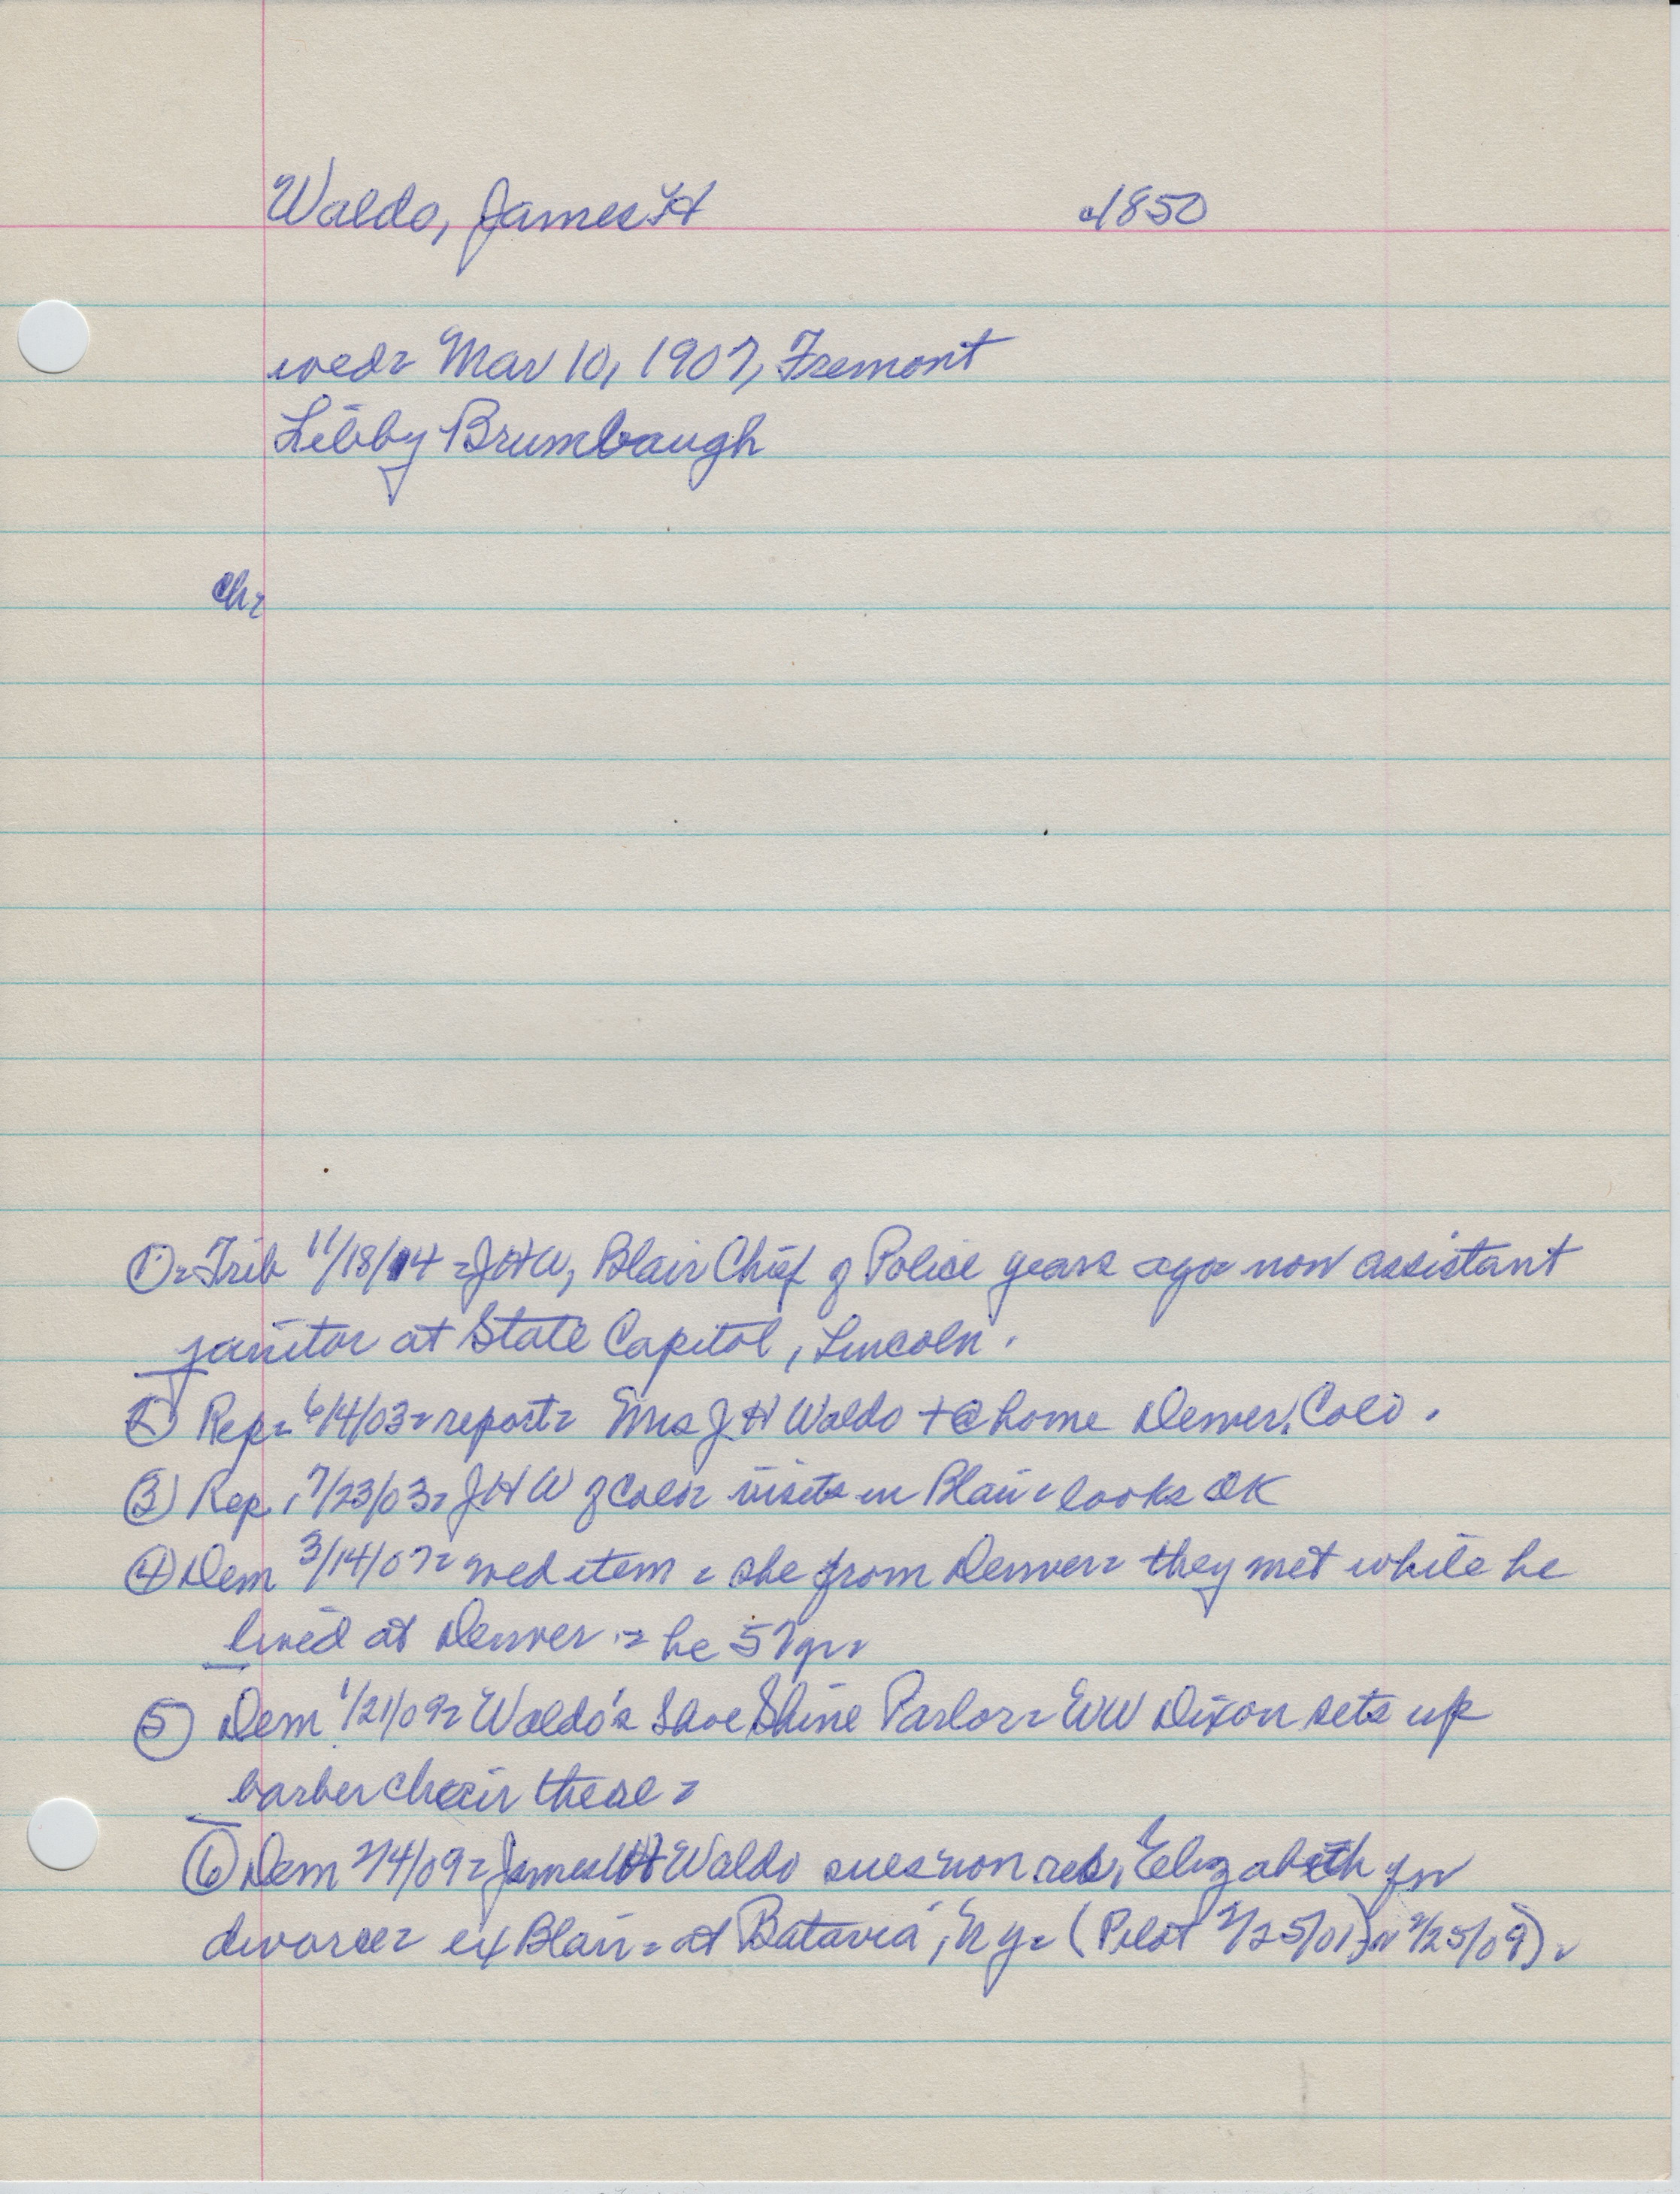 Waldo, James H c1850
wed= Mar 10, 1907, Fremont
Libby Brumbaugh
Ch=
① = Trib 11/18/14 = JHW, Blair Chief of Police years ago= now assistant
janitor at State Capitol, Lincoln.
② Rep= 6/4/03= report= Mrs J H Waldo + @ home Denver, Colo.
③ Rep, 7/23/03= JHW of Colo= visits in Blair= looks OK
④ Dem 3/14/07= wed item = she from Denver= they met while he
lived at Denver = he 57 yr=
⑤ Dem 1/21/09= Waldo's Shoe Shine Parlor= WW Dixon sets up
barber chair there=
⑥ Dem 2/4/09= James H Waldo sues Elizabeth for
divorce= ex Blair= at Batavia, N.Y.= (Pilot 2/25/09)=